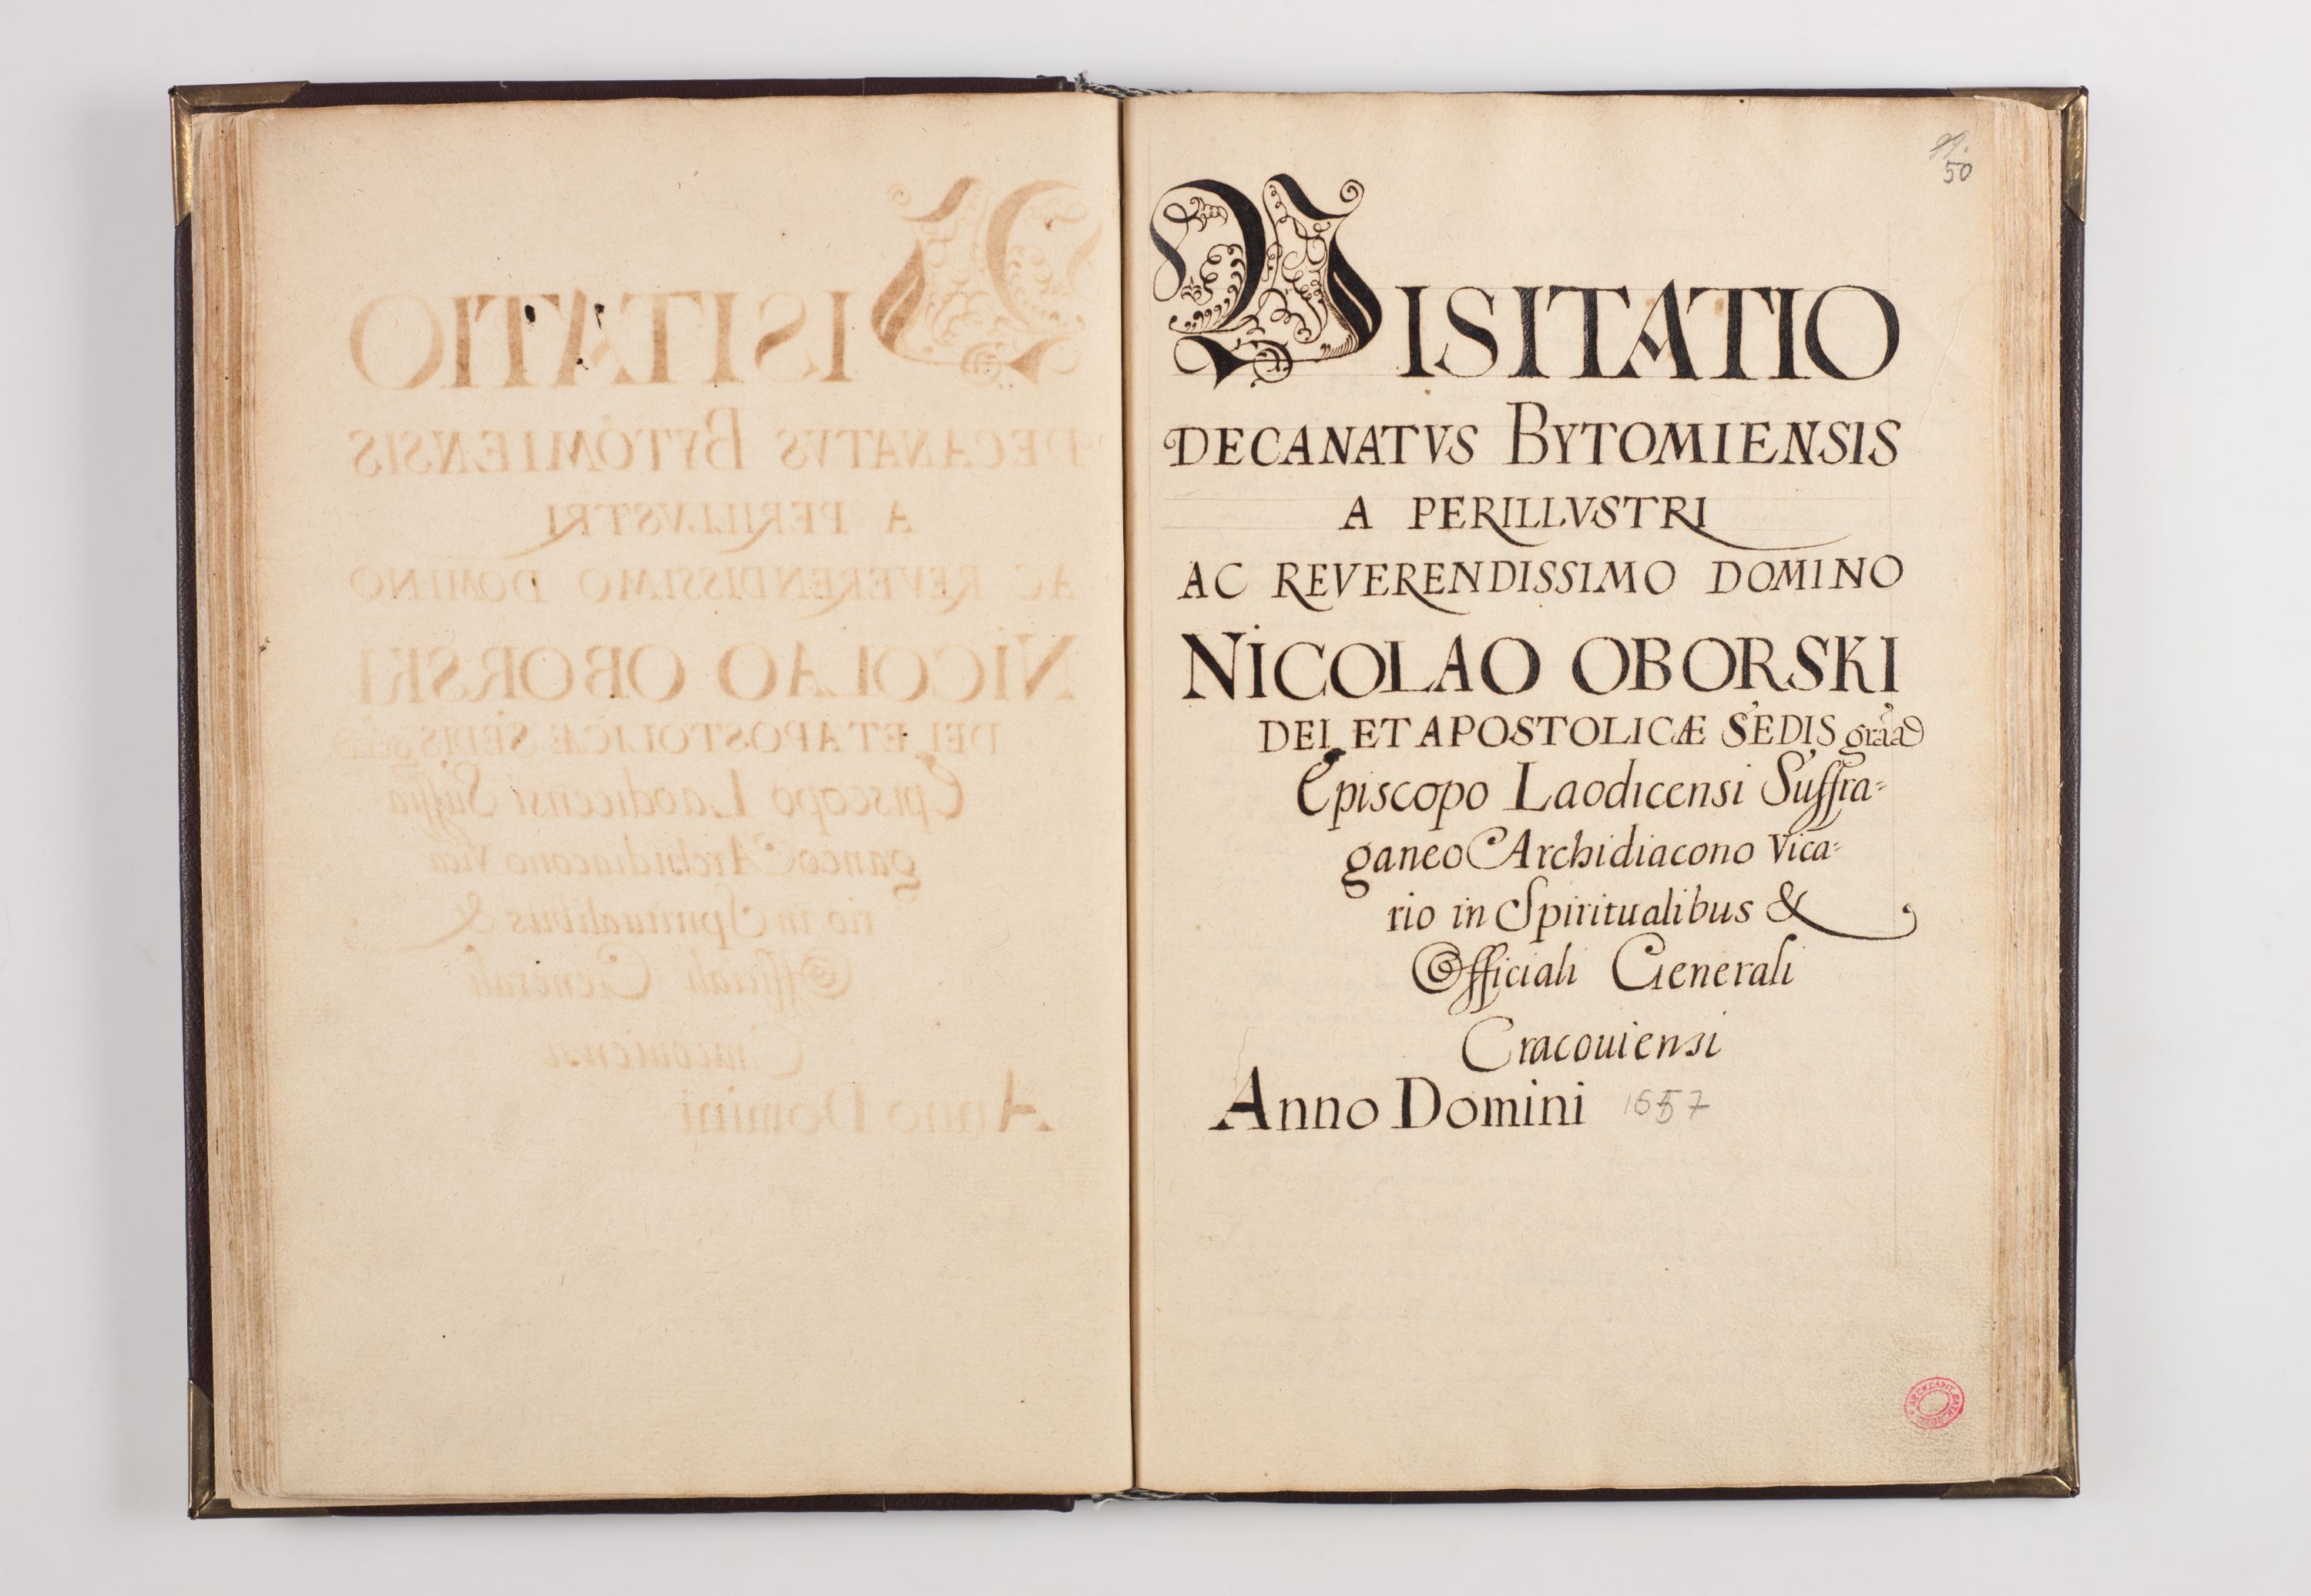 50
VISITATIO
DECANATVS BYTOMIENSIS
A PERILLVSTRI
AC REVERENDISSIMO DOMINO
NICOLAO OBORSKI
DEI ET APOSTOLICÆ SEDIS graã
Episcopo Laodicensi Suffra=
ganeo Archidiacono Vica=
rio in Spiritualibus &
Officiali Generali
Cracouiensi
Anno Domini 1657